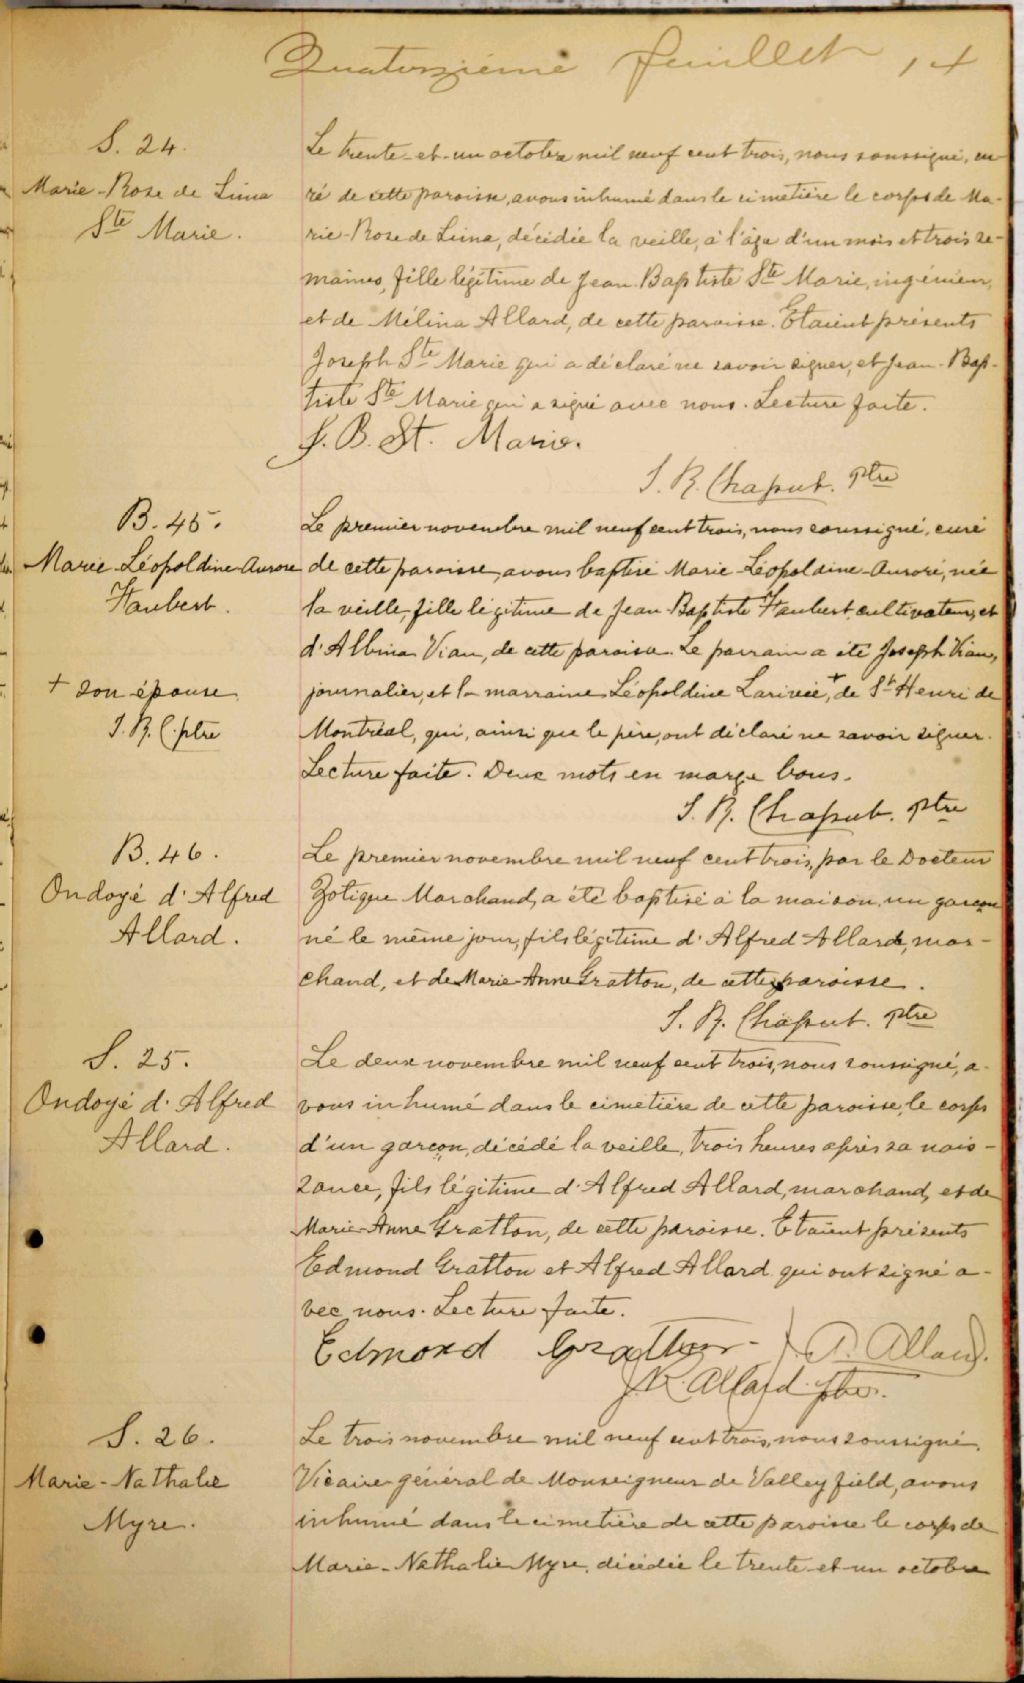 Quatorzième feuillet 14
S. 24.
Marie-Rose de Lima
Ste Marie.
Le trente-et-un octobre mil neuf cent trois, nous soussigné, cu-
ré de cette paroisse, avons inhumé dans le cimetière le corps de Ma-
rie-Rose de Lima, décédée la veille, à l'âge d'un mois et trois se-
maines, fille légitime de Jean-Baptiste Ste Marie, ingénieur,
et de Mélina Allard, de cette paroisse. Etaient présents
Joseph Ste Marie qui a déclaré ne savoir signer, et Jean-Bap-
tiste Ste Marie qui a signé avec nous. Lecture faite.
J. B. St. Marie.
J. R. Chaput. Ptre
B. 45.
Marie-Léopoldine-Aurore
Haubert.
+ son épouse
J. R. C. ptre
Le premier novembre mil neuf cent trois, nous soussigné, curé
de cette paroisse, avons baptisé Marie-Léopoldine-Aurore, née
la veille, fille légitime de Jean-Baptiste Haubert, cultivateur, et
d'Albina Viau, de cette paroisse. Le parrain a été Joseph Viau,
journalier, et la marraine Léopoldine Larivée,+ de St Henri de
Montréal, qui, ainsi que le père, ont déclaré ne savoir signer.
Lecture faite. Deux mots en marge bons.
J. R. Chaput. Ptre
B. 46.
Ondoyé d'Alfred
Allard.
Le premier novembre mil neuf cent trois, par le Docteur
Zotique Marchand, a été baptisé à la maison, un garçon
né le même jour, fils légitime d'Alfred Allard, mar-
chand, et de Marie-Anne Gratton, de cette paroisse.
J. R. Chaput. Ptre
S. 25.
Ondoyé d'Alfred
Allard.
Le deux novembre mil neuf cent trois, nous soussigné, a-
vons inhumé dans le cimetière de cette paroisse, le corps
d'un garçon, décédé la veille, trois heures après sa nais-
sance, fils légitime d'Alfred Allard, marchand, et de
Marie-Anne Gratton, de cette paroisse. Etaient présents
Edmond Gratton et Alfred Allard qui ont signé a-
vec nous. Lecture faite.
Edmond Gratton Allard.
Allard ptre.
S. 26.
Marie-Nathalie
Myre.
Le trois novembre mil neuf cent trois, nous soussigné,
Vicaire-général de Monseigneur de Valleyfield, avons
inhumé dans le cimetière de cette paroisse le corps de
Marie-Nathalie Myre, décédée le trente-et-un octobre